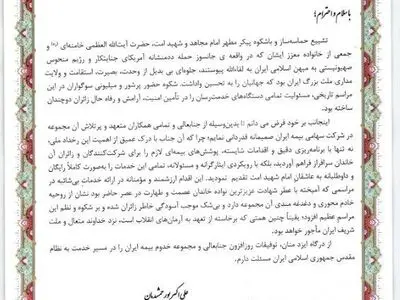 با سلام و احترام؛
تشییع حماسه‌ساز و باشکوه پیکر مطهر امام مجاهد و شهید امت، حضرت آیت‌الله العظمی خامنه‌ای (ره) و
جمعی از خانواده معزز ایشان که در واقعه ی جانسوز حمله ددمنشانه آمریکای جنایتکار و رژیم منحوس
صهیونیستی به میهن اسلامی ایران به لقاءالله پیوستند، جلوه‌ای بی بدیل از وحدت، بصیرت، استقامت و ولایت
مداری ملت بزرگ ایران بود که جهانیان را به تحسین واداشت. شکوه حضور پرشور و میلیونی سوگواران در این
مراسم تاریخی، مسئولیت تمامی دستگاه‌های خدمت‌رسان را در تأمین امنیت، آرامش و رفاه حال زائران دوچندان
ساخته بود.
اینجانب بر خود فرض می دانم تا بدین‌وسیله از جنابعالی و تمامی همکاران متعهد و پرتلاش آن مجموعه
در شرکت سهامی بیمه ایران صمیمانه قدردانی نمایم؛ چرا که آن جناب با درک عمیق از اهمیت این رخداد ملی،
نه تنها با برنامه‌ریزی دقیق و اقدامات شایسته، پوشش‌های بیمه‌ای لازم را برای شرکت‌کنندگان و زائران آن
خاندان سرافراز فراهم آوردید، بلکه با رویکردی ایثارگرانه و مسئولانه، تمامی این خدمات را به‌صورت کاملاً رایگان
و داوطلبانه به عاشقان امام شهید امت تقدیم نمودید. این اقدام ارزشمند و مؤمنانه در ارائه خدمات بی‌شائبه در
مراسمی که آمیخته با عطر شهادت عزیزترین نواده خاندان عصمت و طهارت در عصر حاضر بود نشان از روحیه
خادم محوری و دغدغه مندی آن مجموعه دارد و بی‌شک موجب آسودگی خاطر زائران شده و بر شکوه و نظم این
مراسم عظیم افزود؛ یقیناً چنین همتی که برخاسته از تعهد به آرمان‌های انقلاب است، نزد خداوند متعال و ملت
شریف ایران مأجور خواهد بود.
از درگاه ایزد منان، توفیقات روزافزون جنابعالی و مجموعه خدوم بیمه ایران را در مسیر خدمت به نظام
مقدس جمهوری اسلامی ایران مسئلت دارم.
علی اکبر پورجمشیدیان